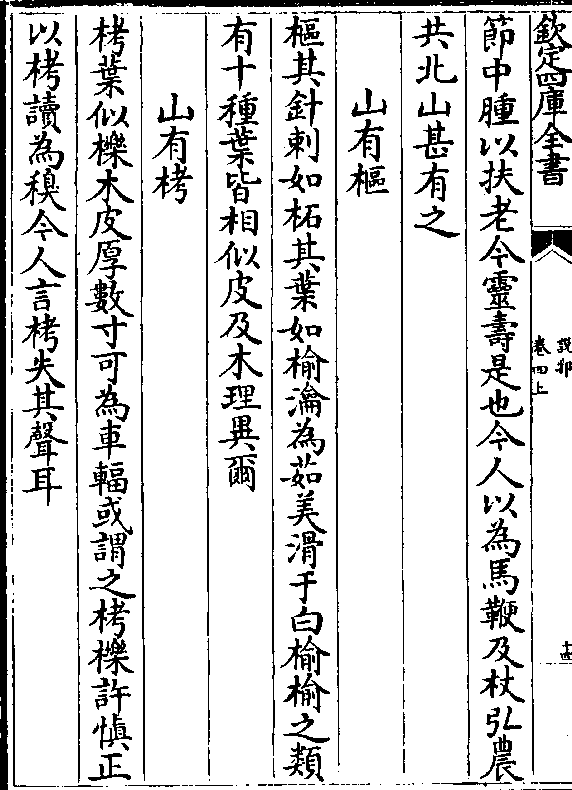 欽定四庫全書
說郛
卷四上
節中腫以扶老今靈壽是也今人以為馬鞭及杖弘農
共北山甚有之
山有樞
樞其針刺如柘其葉如榆瀹為茹美滑于白榆榆之類
有十種葉皆相似皮及木理異爾
山有栲
栲葉似櫟木皮厚數寸可為車輻或謂之栲櫟許慎正
以栲讀為糗今人言栲失其聲耳